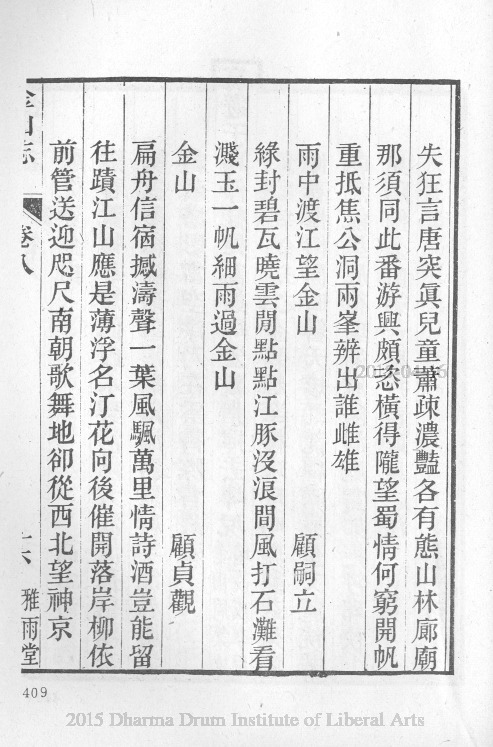 失狂言唐突眞兒童蕭疎濃豔各有態山林廊廟
那須同此番游興頗恣橫得隴望蜀情何窮開帆
重抵焦公洞兩峯辨出誰雌雄
雨中渡江望金山 顧嗣立
綠封碧瓦曉雲閒點點江豚沒浪間風打石灘看
濺玉一帆細雨過金山
金山 顧貞觀
扁舟信宿撼濤聲一葉風颿萬里情詩酒豈能留
往蹟江山應是薄浮名汀花向後催開落岸柳依
前管送迎咫尺南朝歌舞地卻從西北望神京
金山志 卷八 雅雨堂
409
2015 Dharma Drum Institute of Liberal Arts